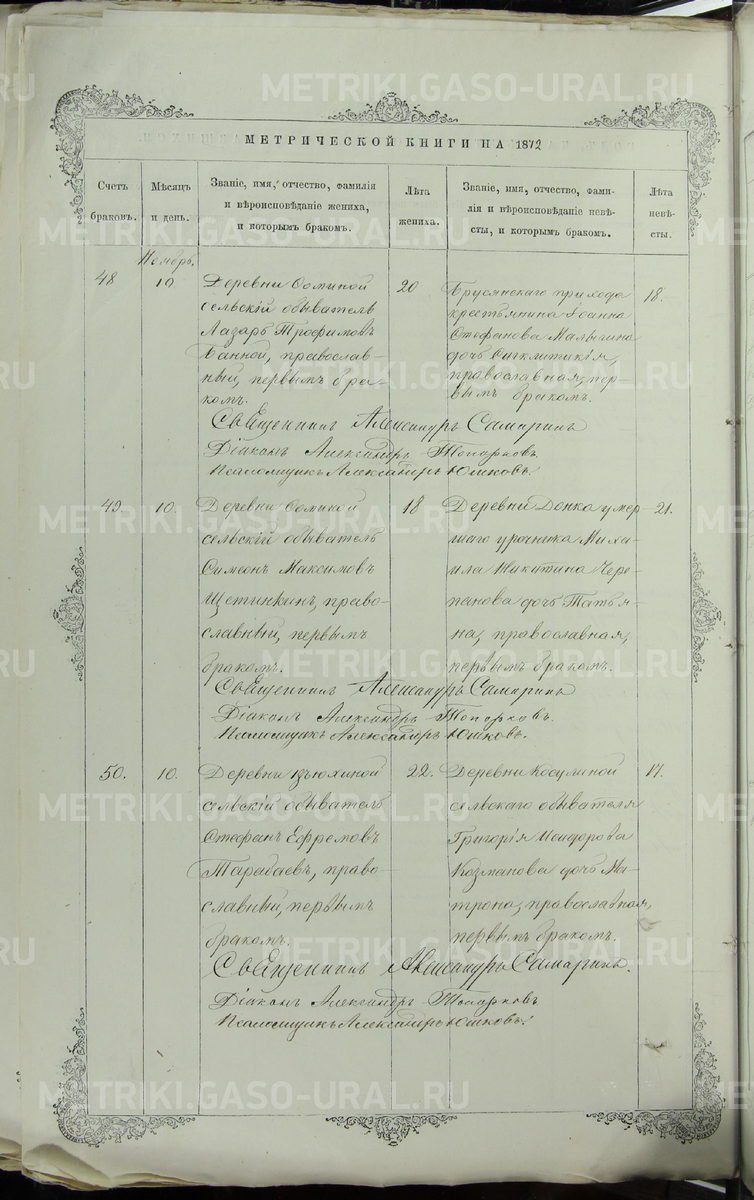 МЕТРИЧЕСКОЙ КНИГИ НА 1872
Счетъ браковъ.
Мѣсяцъ и день.
Званіе, имя, отчество, фамилія
и вѣроисповѣданіе жениха,
и которымъ бракомъ.
Лѣта жениха.
Званіе, имя, отчество, фами-
лія и вѣроисповѣданіе невѣ-
сты, и которымъ бракомъ.
Лѣта невѣ-
сты.
Ноябрь.
48
10
Деревни Ѳоминой
сельскій обыватель
Лазарь Трофимовъ
Банной, православ-
ный, первымъ бра-
комъ.
20
Брусянскаго прихода
крестьянина Іоанна
Стефанова Малыгина
дочь Сигклитикія,
православная, пер-
вымъ бракомъ.
18.
Священникъ Александръ Самаринъ
Діаконъ Александръ Топорковъ
Псаломщикъ Александръ Юшковъ.
49.
10.
Деревни Ѳоминой
сельскій обыватель
Симеонъ Максимовъ
Щетинкинъ, право-
славный, первымъ
бракомъ.
18
Деревни Донка умер-
шаго урочника Миха-
ила Никитина Чере-
панова дочь Татья-
на, православная,
первымъ бракомъ.
21.
Священникъ Александръ Самаринъ
Діаконъ Александръ Топорковъ.
Псаломщикъ Александръ Юшковъ.
50.
10.
Деревни
сельскій обыватель
Стефанъ Ефремовъ
Тарабаевъ, право-
славный, первымъ
бракомъ.
22.
Деревни Косулиной
сельскаго обывателя
Григорія Исидорова
Козманова дочь Ма-
трона, православная,
первымъ бракомъ.
17.
Священникъ Александръ Самаринъ.
Діаконъ Александръ Топорковъ
Псаломщикъ Александръ Юшковъ.
METRIKI.GASO-URAL.RU